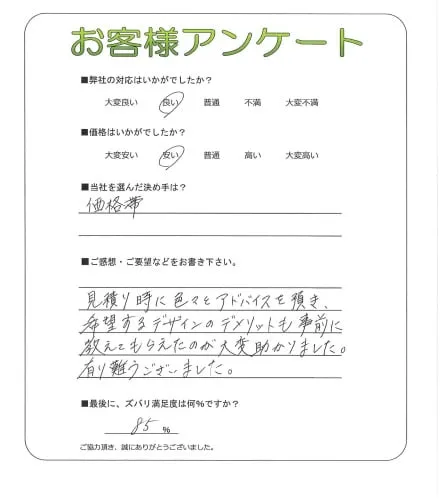 お客様アンケート
■弊社の対応はいかがでしたか?
大変良い 良い 普通 不満 大変不満
■価格はいかがでしたか?
大変安い 安い 普通 高い 大変高い
■当社を選んだ決め手は?
価格帯
■ご感想・ご要望などをお書き下さい。
見積り時に色々とアドバイスを頂き、
希望するデザインのデメリットも事前に
教えてもらえたのが大変助かりました。
有り難うございました。
■最後に、ズバリ満足度は何%ですか?
85 %
ご協力頂き、誠にありがとうございました。